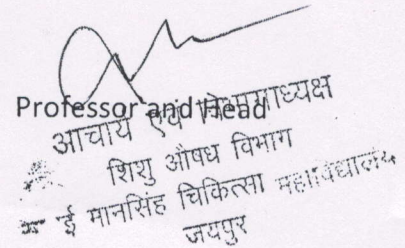 Professor and Head
आचार्य एवं विभागाध्यक्ष
शिशु औषध विभाग
ई मानसिंह चिकित्सा महाविद्यालय
जयपुर